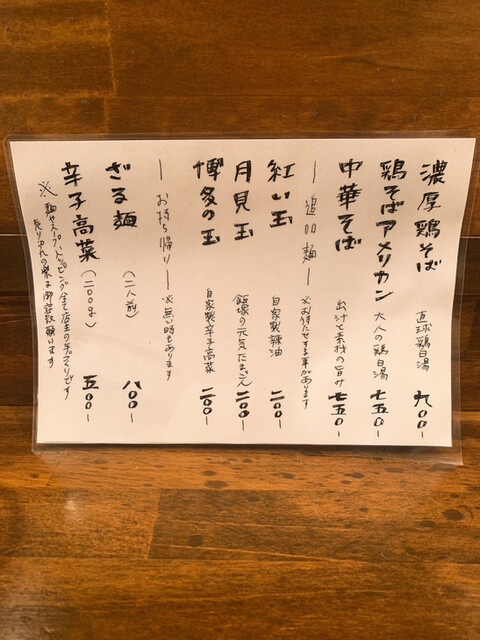 濃厚鶏そば 直球鶏白湯 九〇〇-
鶏そばアメリカン 大人の鶏白湯 七五〇-
中華そば 出汁と素材の旨み 七五〇-
― 追加麺 ― ※お待たせする事があります
紅い玉 自家製辣油 二〇〇-
月見玉 飯塚の元気たまごん 二〇〇-
博多の玉 自家製辛子高菜 二〇〇-
― お持ち帰り ― ※無い時もあります
ざる麺 (二人前) 八〇〇-
辛子高菜 (二〇〇g) 五〇〇-
※麺やスープ・トッピング全て店主の手づくりです
売り切れの際は御容赦願います